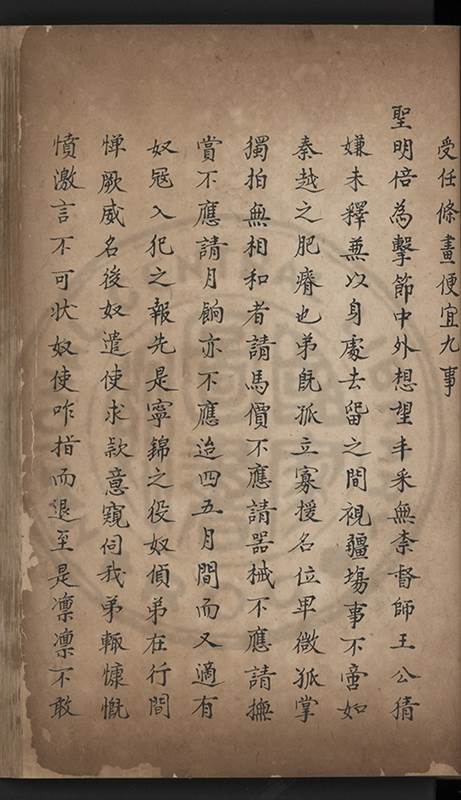 受任條畫便宜九事
聖明倍為擊節中外想望丰采無柰督師王公猜
嫌未釋兼以身處去留之間視疆埸事不啻如
秦越之肥瘠也弟既孤立寡援名位卑微孤掌
獨拍無相和者請馬價不應請器械不應請撫
賞不應請月餉亦不應迨四五月間而又適有
奴冦入犯之報先是寧錦之役奴偵弟在行間
憚厥威名後奴遣使求款意窺伺我弟輙慷慨
憤激言不可狀奴使咋指而退至是凛凛不敢